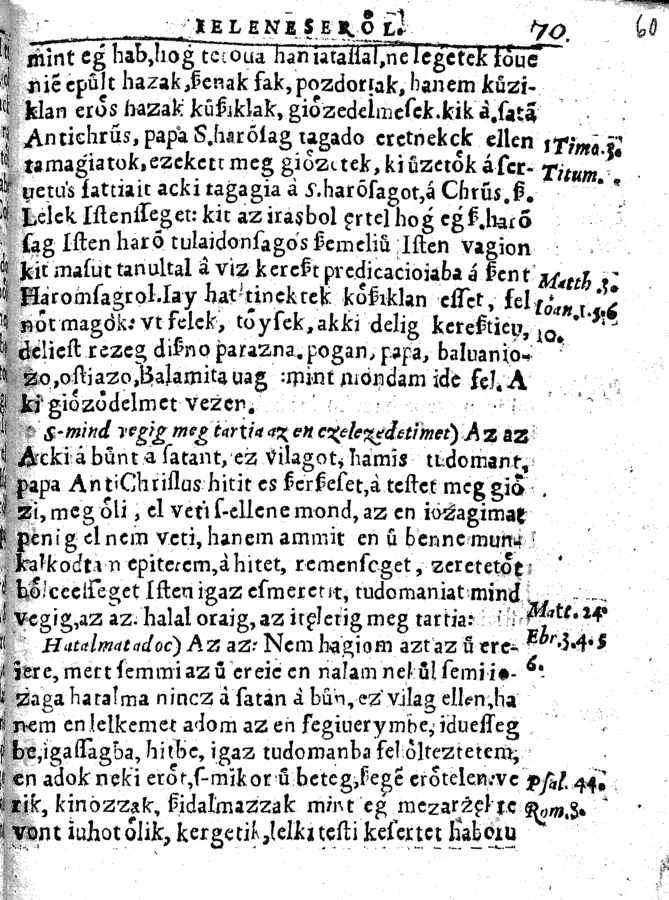 IELENESERŐL. 70. 60
mint eǵ hab, hog teroua haniatassal, ne legetek főue
niē epűlt hazak, ßenak fak, pozdoriak, hanem kűzi-
klan erős hazak kűßiklak, giőzedelmesek. kik à, satā
Antichrűs, papa S. harőſag tagado eretnekek ellen
tamagiatok, ezekett meg giőzetek, ki űzetők á ſer-
uetus fattiait acki tagagia à s. harőſagot, á Chrűs. ß.
Lelek Iſtenſſeget: kit az irasbol ęrtel hog eg ß. harō
ſag Iſten harō tulaidonſagos ßemeliű Iſten vagion
kit masut tanultal â viz kereßt predicacioiaba á ßent
Haromſagrol. Iay hat tinektek kőßiklan eſſet, fel
nőt magok: vt felek, tőysek, akki delig kereßtien,
delieſt rezeg dißno parazna. pogan, papa, baluanio-
zo, oſtiazo, Balamita uag :mint mondam ide fel. A
ki giőződelmet vezen.
s-mind vegig meg tartia az en czelezedetimet) Az az
Acki á bűnt a satant, ez vilagot, hamis tudomant,
papa AntiChriſlus hitit es ßerßeſet, à teſtet meg giő
zi, meg őli, el veti ſ-ellene mond, az en iozagimat
penig el nem veti, hanem ammit en ű benne mun-
kalkodtan epitetem, à hitet, remenſeget, zeretetőt
bőlceeſſeget Iſten igaz eſmeretit, tudomaniat mind
vegig, az az. halal oraig, az itęletig meg tartia:
Hatalmat adoc) Az az: Nem hagiom azt az ű ere-
iere, mert ſemmi az ű ereie en nalam nelűl ſemi io-
zaga hatalma nincz à satan à bűn, ez vilag ellen, ha
nem en lelkemet adom az en fegiuerymbe, idueſſeg
be, igaſſagba, hitbe, igaz tudomanba fel őlteztetem,
en adok neki erőt, ſ-mikor ű beteg, ßegē erőtelen: ve
rik, kinozzak, ßidalmazzak mint eǵ mezarżękre
vont iuhot őlik, kergetik, lelki teſti keſertet haboru
1 Timo. 3.
Titum.
Matth 3.
Ioan. 1. 5. 6
10.
Matt. 24.
Ebr. 3. 4. 5
6.
Psal. 44.
Rom. 8.